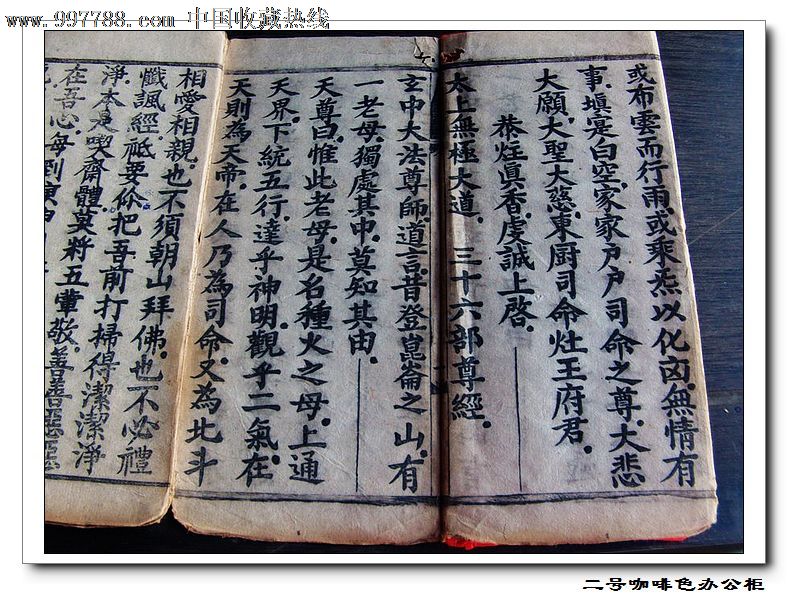 www.997788.com 中国收藏热线
或布雲而行雨.或乘炁以化囟.無情有
事.填寔白空.家家戶戶司命之尊.大悲
大願.大聖大慈.東厨司命灶王府君.
恭炷真香.虔誠上啓.
太上無極大道. 三十六部尊經.
玄中大法尊師道言.昔登崑崙之山.有
一老母.獨處其中.莫知其由.
天尊曰.惟此老母.是名種火之母.上通
天界.下統五行.達乎神明.觀乎二氣.在
天則為天帝.在人乃為司命.又為北斗
相愛相親.也不須朝山拜佛.也不必禮
懺諷經.祗要伱把吾前打掃得潔潔淨
淨.本是喫齋體.莫將五葷敬.善善惡惡
在吾心.每到庚申
二号咖啡色办公柜